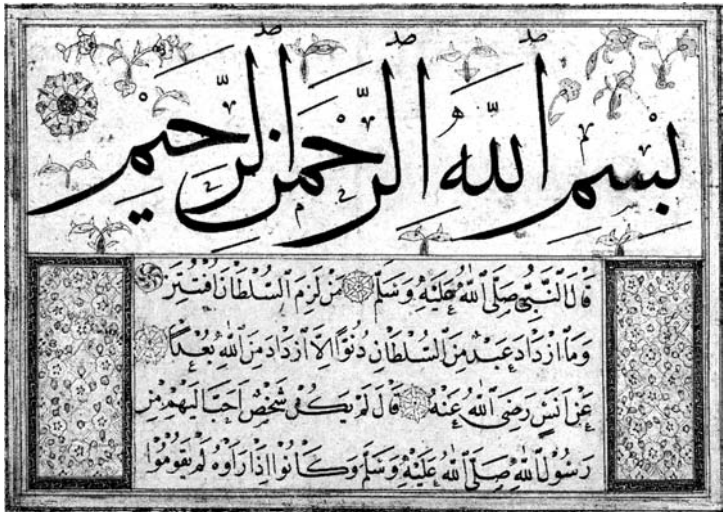 بِسْمِ اللهِ الرَّحْمٰنِ الرَّحِيمِ
قَالَ النَّبِيُّ صَلَّى اللهُ عَلَيْهِ وَسَلَّمَ مَنْ لَزِمَ السُّلْطَانَ افْتُتِنَ
وَمَا ازْدَادَ عَبْدٌ مِنَ السُّلْطَانِ دُنُوًّا اِلَّا ازْدَادَ مِنَ اللهِ بُعْدًا
عَنْ اَنَسٍ رَضِىَ اللهُ عَنْهُ قَالَ لَمْ يَكُنْ شَخْصٌ اَحَبَّ اِلَيْهِمْ مِنْ
رَسُولِ اللهِ صَلَّى اللهُ عَلَيْهِ وَسَلَّمَ وَكَانُوا اِذَا رَاَوْهُ لَمْ يَقُومُوا